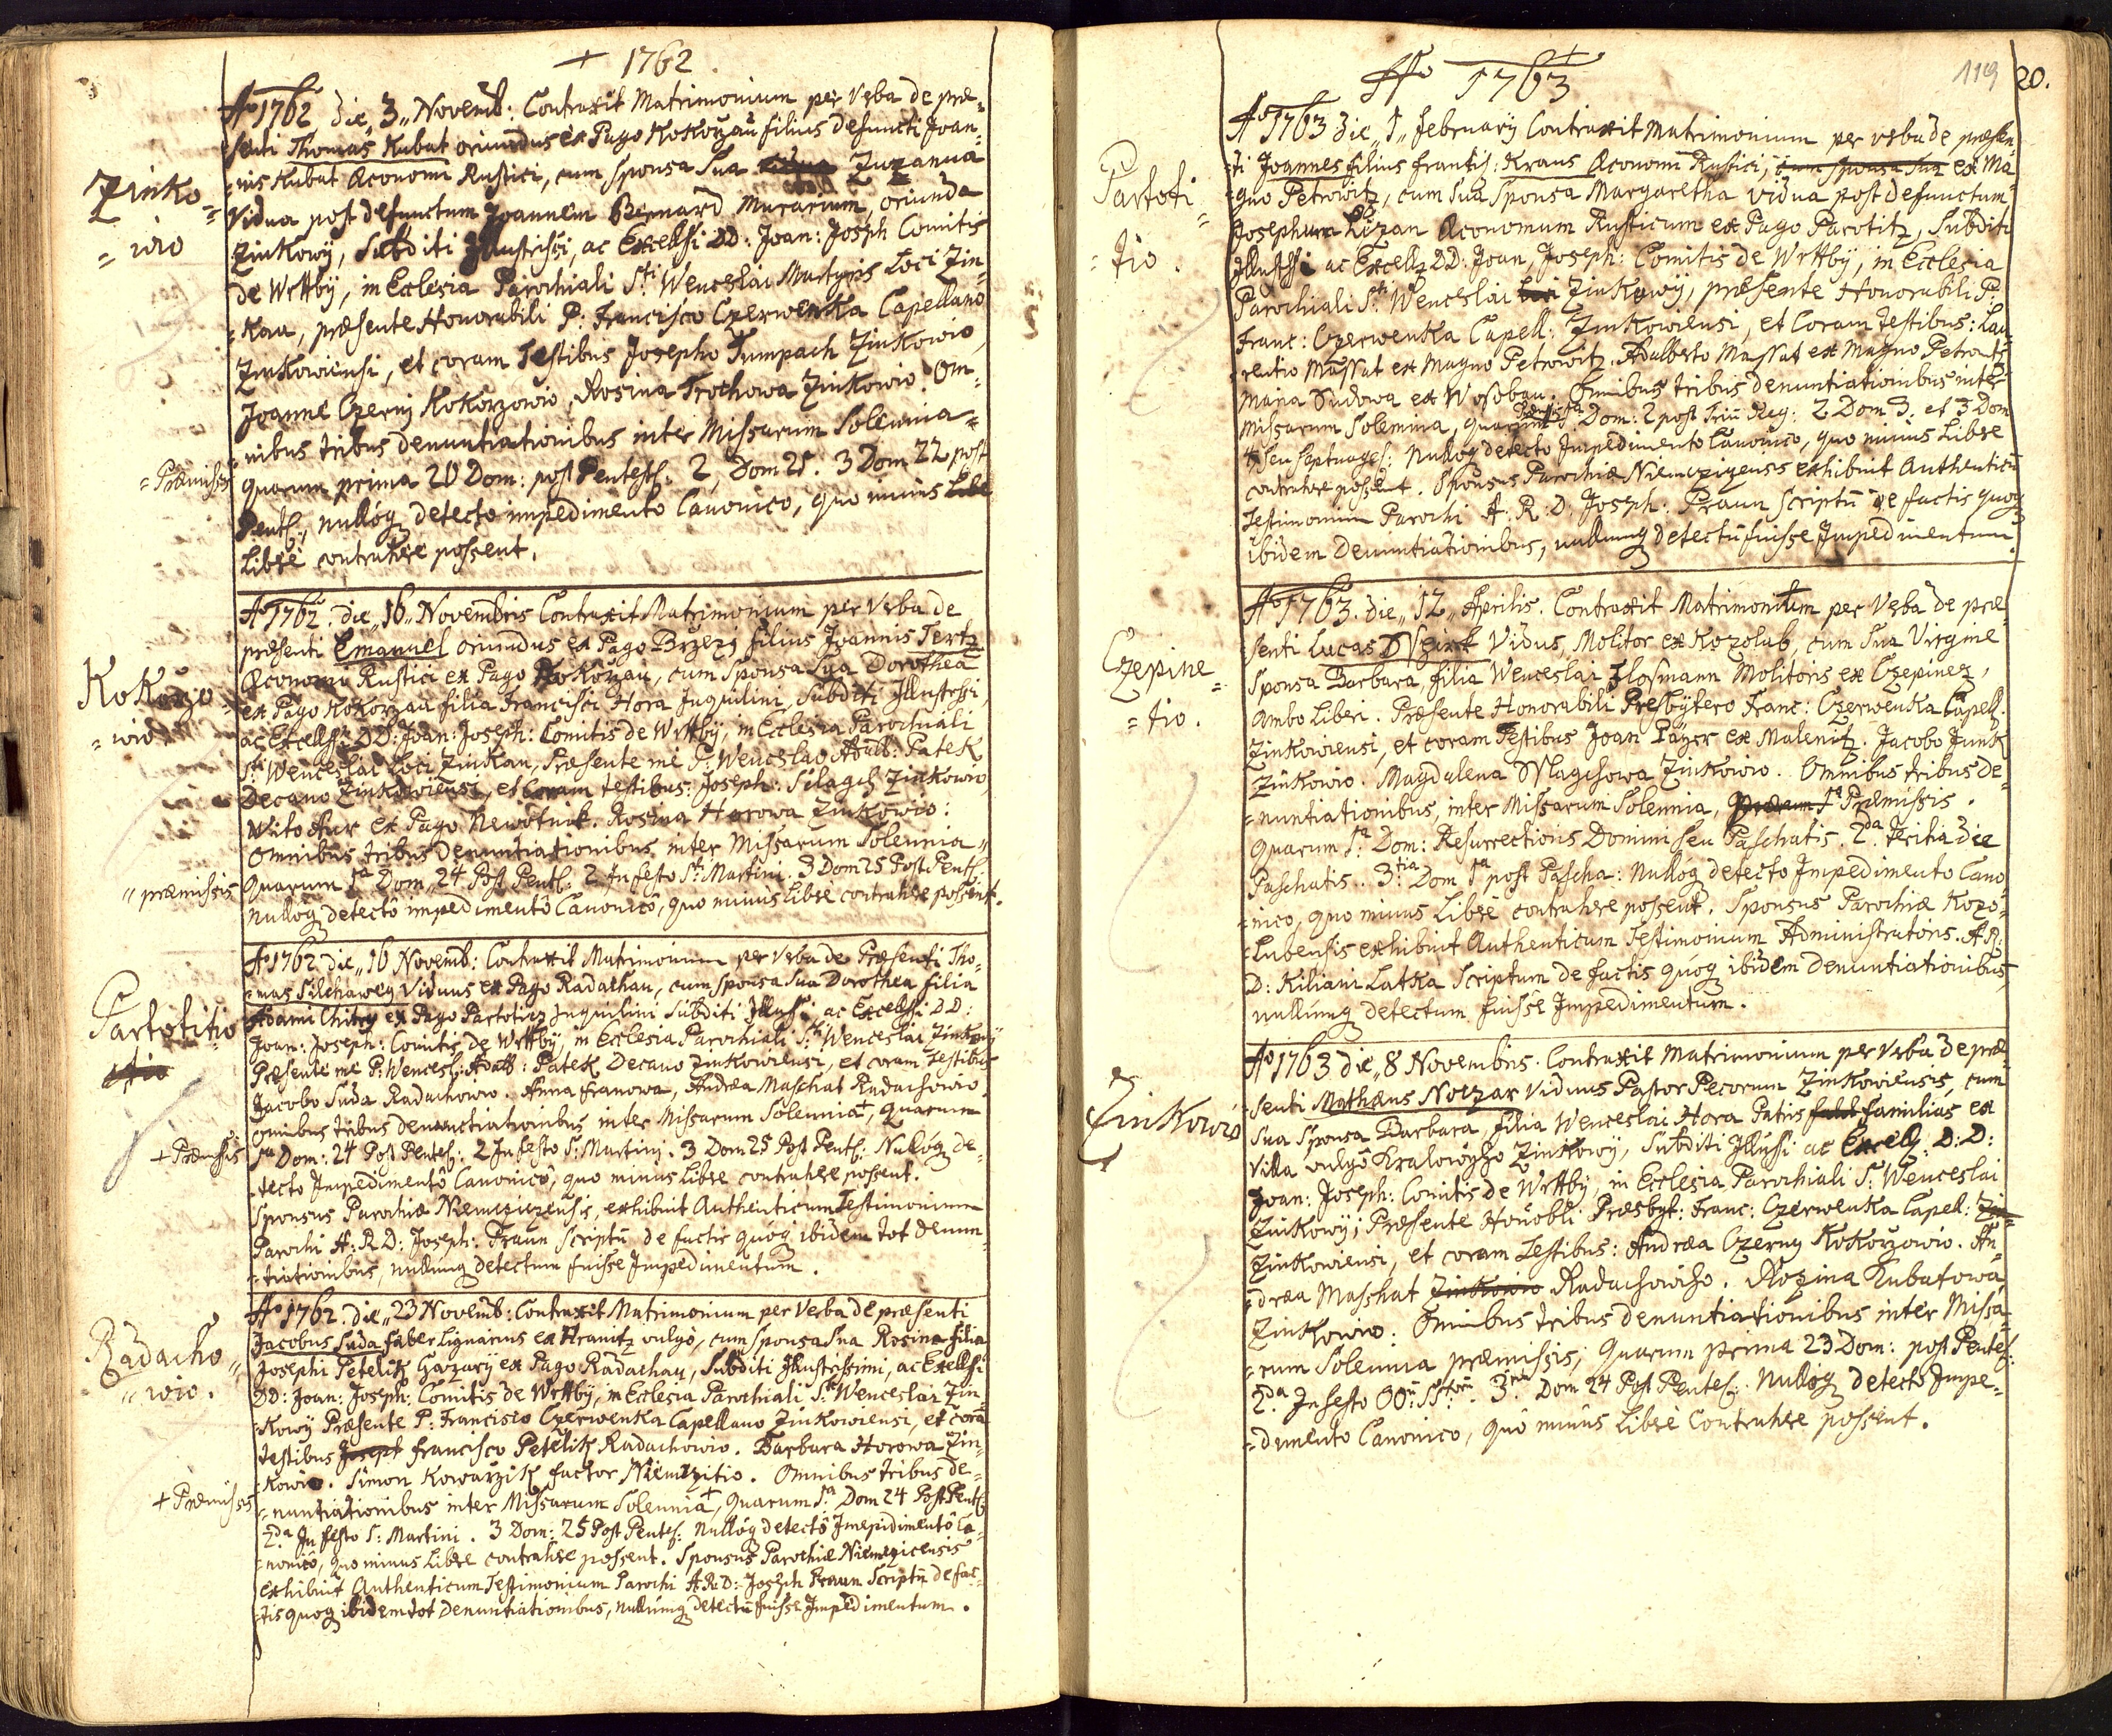 + 1762.
Ao 1762 die „3„ Novemb: Contraxit Matrimonium per Verba de præ=
senti Thomas Kubat oriundus ex Pago Kokorzau filius defuncti Joan=
nis Kubat Œconomi Rustici, cum Sponsa Sua Zuzanna
Vidua post defunctum Joannem Bernard Murarium, oriunda
Zinko=
=wio
Zinkowÿ, Subditi Illustrissi, ac Excellssi DD: Joan: Joseph Comitis
de Wrttbÿ, in Ecclesia Parochiali Sti Wenceslai Martyris Loci Zin=
=kau, præsente Honorabili P: Francisco Czerwenka Capellano
Zinkowiensi, et coram Testibus Josepho Tumpach Zinkowio,
Joanne Czerny Kokorzowio, Rosina Trochowa Zinkowio. Om=
nibus tribus denuntiationibus inter Missarum Solennia=
=Præmissis
quarum prima 20 Dom: post Pentest: 2, Dom 21. 3 Dom 22 post
Pent:, nullóq detecto impedimento Canonico, quo minus
Liberè contrahere possent.
Ao 1762. die „16„ Novembris Contraxit Matrimonium per Verba de
præsenti Emanuel oriundus ex Pago Brzezy filius Joannis Tertz
Œconomi Rustici ex Pago Kokorzau, cum Sponsa Sua Dorothea
Kokorzo
=wio
ex Pago Kokorzau filia Francisci Hora Inquilini, Subditi Illustrssi,
ac Excellssi DD: Joan: Joseph: Comitis de Wrttbÿ, in Ecclesia Parochiali
Sti Wenceslai Loci Zinkau, Præsente me P: Wenceslao Adalb: Patek
Decano Zinkowiensi, et Coram testibus: Joseph: Silagch Zinkowio,
Wito Aur ex Pago Newotnik. Rosina Horowa Zinkowio:
Omnibus tribus Denuntiationibus inter Missarum Solennia„
„præmissis
Quarum 1a Dom„ 24 Post Pent: 2 In festo Sti Martini. 3 Dom 25 Post Pent:
nullóq detectô impedimentô Canonicô, quo minùs Liberè contrahere possent.
Ao 1762 die „16 Novemb: Contraxit Matrimonium per Verba de Præsenti Tho=
=mas Silchawey Viduus ex Pago Radachau, cum Sponsa Sua Dorothea filia
Partotitio
Adami Chitry ex Pago Partotitz Inquilini Subditi Illussi ac Excellssi DD:
Joan: Joseph: Comitis de Wrttbÿ, in Ecclesia Parochiali Sti Wenceslai Zinkowÿ
Præsente me P: Wencesl: Adalb: Patek Decano Zinkowiensi, et coram Testibus
Jacobo Suda Radachowio. Anna Franowa, Andrea Maschat Radachowio
Omnibus tribus denunctiationibus inter Missarum Solennia, quarum
+ Præmissis
1a Dom: 24 Post Pentes: 2 In festo S: Martini. 3 Dom 25 Post Pent: Nullóq de=
tecto Impedimentô Canonicô, quo minus Liberè contrahere possent.
Sponsus Parochiæ Niemcziczensis, exhibuit Authenticum Testimonium
Parochi A: R D: Joseph: Praun Scriptū de factis quóq ibidem tot Denun=
=tiationibus, nullumq detectum fuisse Impedimentum.
Ao 1762. die „23 Novemb: Contraxit Matrimonium per Verba de præsenti
Jacobus Suda faber Lignarius ex Hranitz vulgo, cum Sponsa Sua Rosina filia
Radacho„
„wio.
Josephi Petelik Gazarÿ ex Pago Radachau, Subditi Illustrissimi, ac Excellssi
DD: Joan: Joseph: Comitis de Wrttbÿ, in Ecclesia Parochiali Sti Wenceslai Zin=
=kowÿ Præsente P: Francisco Czerwenka Capellano Zinkowiensi, et corā
testibus Francisco Petelik Radachowio. Barbara Horowa Zin=
=kowio. Simon Kowarzik factor Niemzitio. Omnibus tribus de=
+ Præmissis
=nuntiationibus inter Missarum Solennia +, Quarum 1a Dom 24 Post Pent:
2da In festo S: Martini. 3 Dom: 25 Post Pentes: Nullóq detectô Impidimentô Ca=
=nonicô, quo minus Liberè contrahere possent. Sponsus Parochiæ Niemczicensis
exhibuit Authenticum Testimonium Parochi A.R.D: Joseph Praun Scriptū de fac=
=tis quoq ibidem tot Denuntiationibus, nullumq detectū fuisse Impedimentum.
Ao 1763
119
20.
Ao 1763 die „1„ February Contraxit Matrimonium per verba de præsen
Partoti
=tio.
=ti Joannes filius Francisi: Kraus Œconomi Rustici, cum sponsa sua ex Ma=
=gno Petrowitz, cum Sua Sponsa Margaretha Vidua post defunctum
Josephum Œconomum Rusticum ex Pago Parotitz, Subditi
Illustssi ac Excells DD: Joan, Joseph: Comitis de Wrttbÿ, in Ecclesia
Parochiali Sti Wenceslai Loci Zinkowÿ, præsente Honorabili P:
Franc: Czerwenka Capell: Zinkowiensi, et Coram Testibus: Lau=
=rentio Massat ex Magno Petrowitz. Adalberto Massat ex Magno Petrowitz
Maria Sudowa ex Wosobau. Omnibus tribus denuntiationibus inter
Missarum Solemnia, Præmissis quarum 1a Dom: 2 post Triū Reg: 2 Dom 3. et 3 Dom
4 seu Septuages: Nullóq detecto Impedimento Canonico, quo minus Liberè
contrahere possent. Sponsus Parochiæ Niemczizensis exhibuit Authenticū
Testimonium Parochi A: R: D: Joseph: Praun Scriptū de factis quoq
ibidem Denuntiationibus, nullumq detectū fuisse Impedimentum.
Ao 1763. die „12„ Aprilis. Contraxit Matrimonium per Verba de præ
senti Lucas Viduus, Molitor ex Kozolub, cum Sua Virgine
Czepine=
=tio.
Sponsa Barbara, filia Wenceslai Flosmann Molitoris ex Czepinez,
ambo Liberi. Præsente Honorabili Presbÿtero Franc: Czerwenka Capell:
Zinkowiensi, et coram Testibus Joan Payer ex Malenitz. Jacobo Junk
Zinkowio. Magdalena Wlagchowa Zinkowio. Omnibus tribus de=
=nuntiationibus, inter Missarum Solennia, Præmissis.
Quarum 1a Dom: Resurrectionis Domini seu Paschatis. 2da Tertia die
Paschatis. 3tia Dom 1a post Pascha: Nullóq detecto Impedimento Cano
=nico, quo minus Liberè contrahere possent. Sponsus Parochiæ Kozo=
=lubensis exhibuit Authenticum Testimonium Administratoris. A R:
D: Kiliani Latka Scriptum de factis quóq ibidem Denuntiationibus,
nullúmq detectum fuisse Impedimentum.
Ao 1763 die „8 Novembris. Contraxit Matrimonium per Verba de præ=
Zinkowio
senti Mathæus Notzar Viduus Pastor Pecorum Zinkowiensis, cum
Sua Sponsa Barbara, filia Wenceslai Hora Patris familias ex
Villa vulgô Kralowoyho Zinkowÿ, Subditi Illussi ac Excells: D: D:
Joan: Joseph: Comitis de Wrttbÿ, in Ecclesia Parochiali S: Wenceslai
Zinkowÿ; Præsente Honobli Præsbyt: Franc: Czerwenka Capel: Zin=
Zinkowiensi, et coram Testibus: Andræa Czerny Kokorzowio. An=
=dræa Maschat Zinkowio Radachowicho. Rozina Kubatowa
Zinkowio: Omnibus tribus denuntiationibus inter Missa=
=rum Solennia præmissis; Quarum prima 23 Dom: post Pentes:
2da In festo OO: SStorū. 3tia Dom 24 Post Pentes: Nullóq detecto Impe=
=dimento Canonico, quô minùs Liberè Contrahere possent.